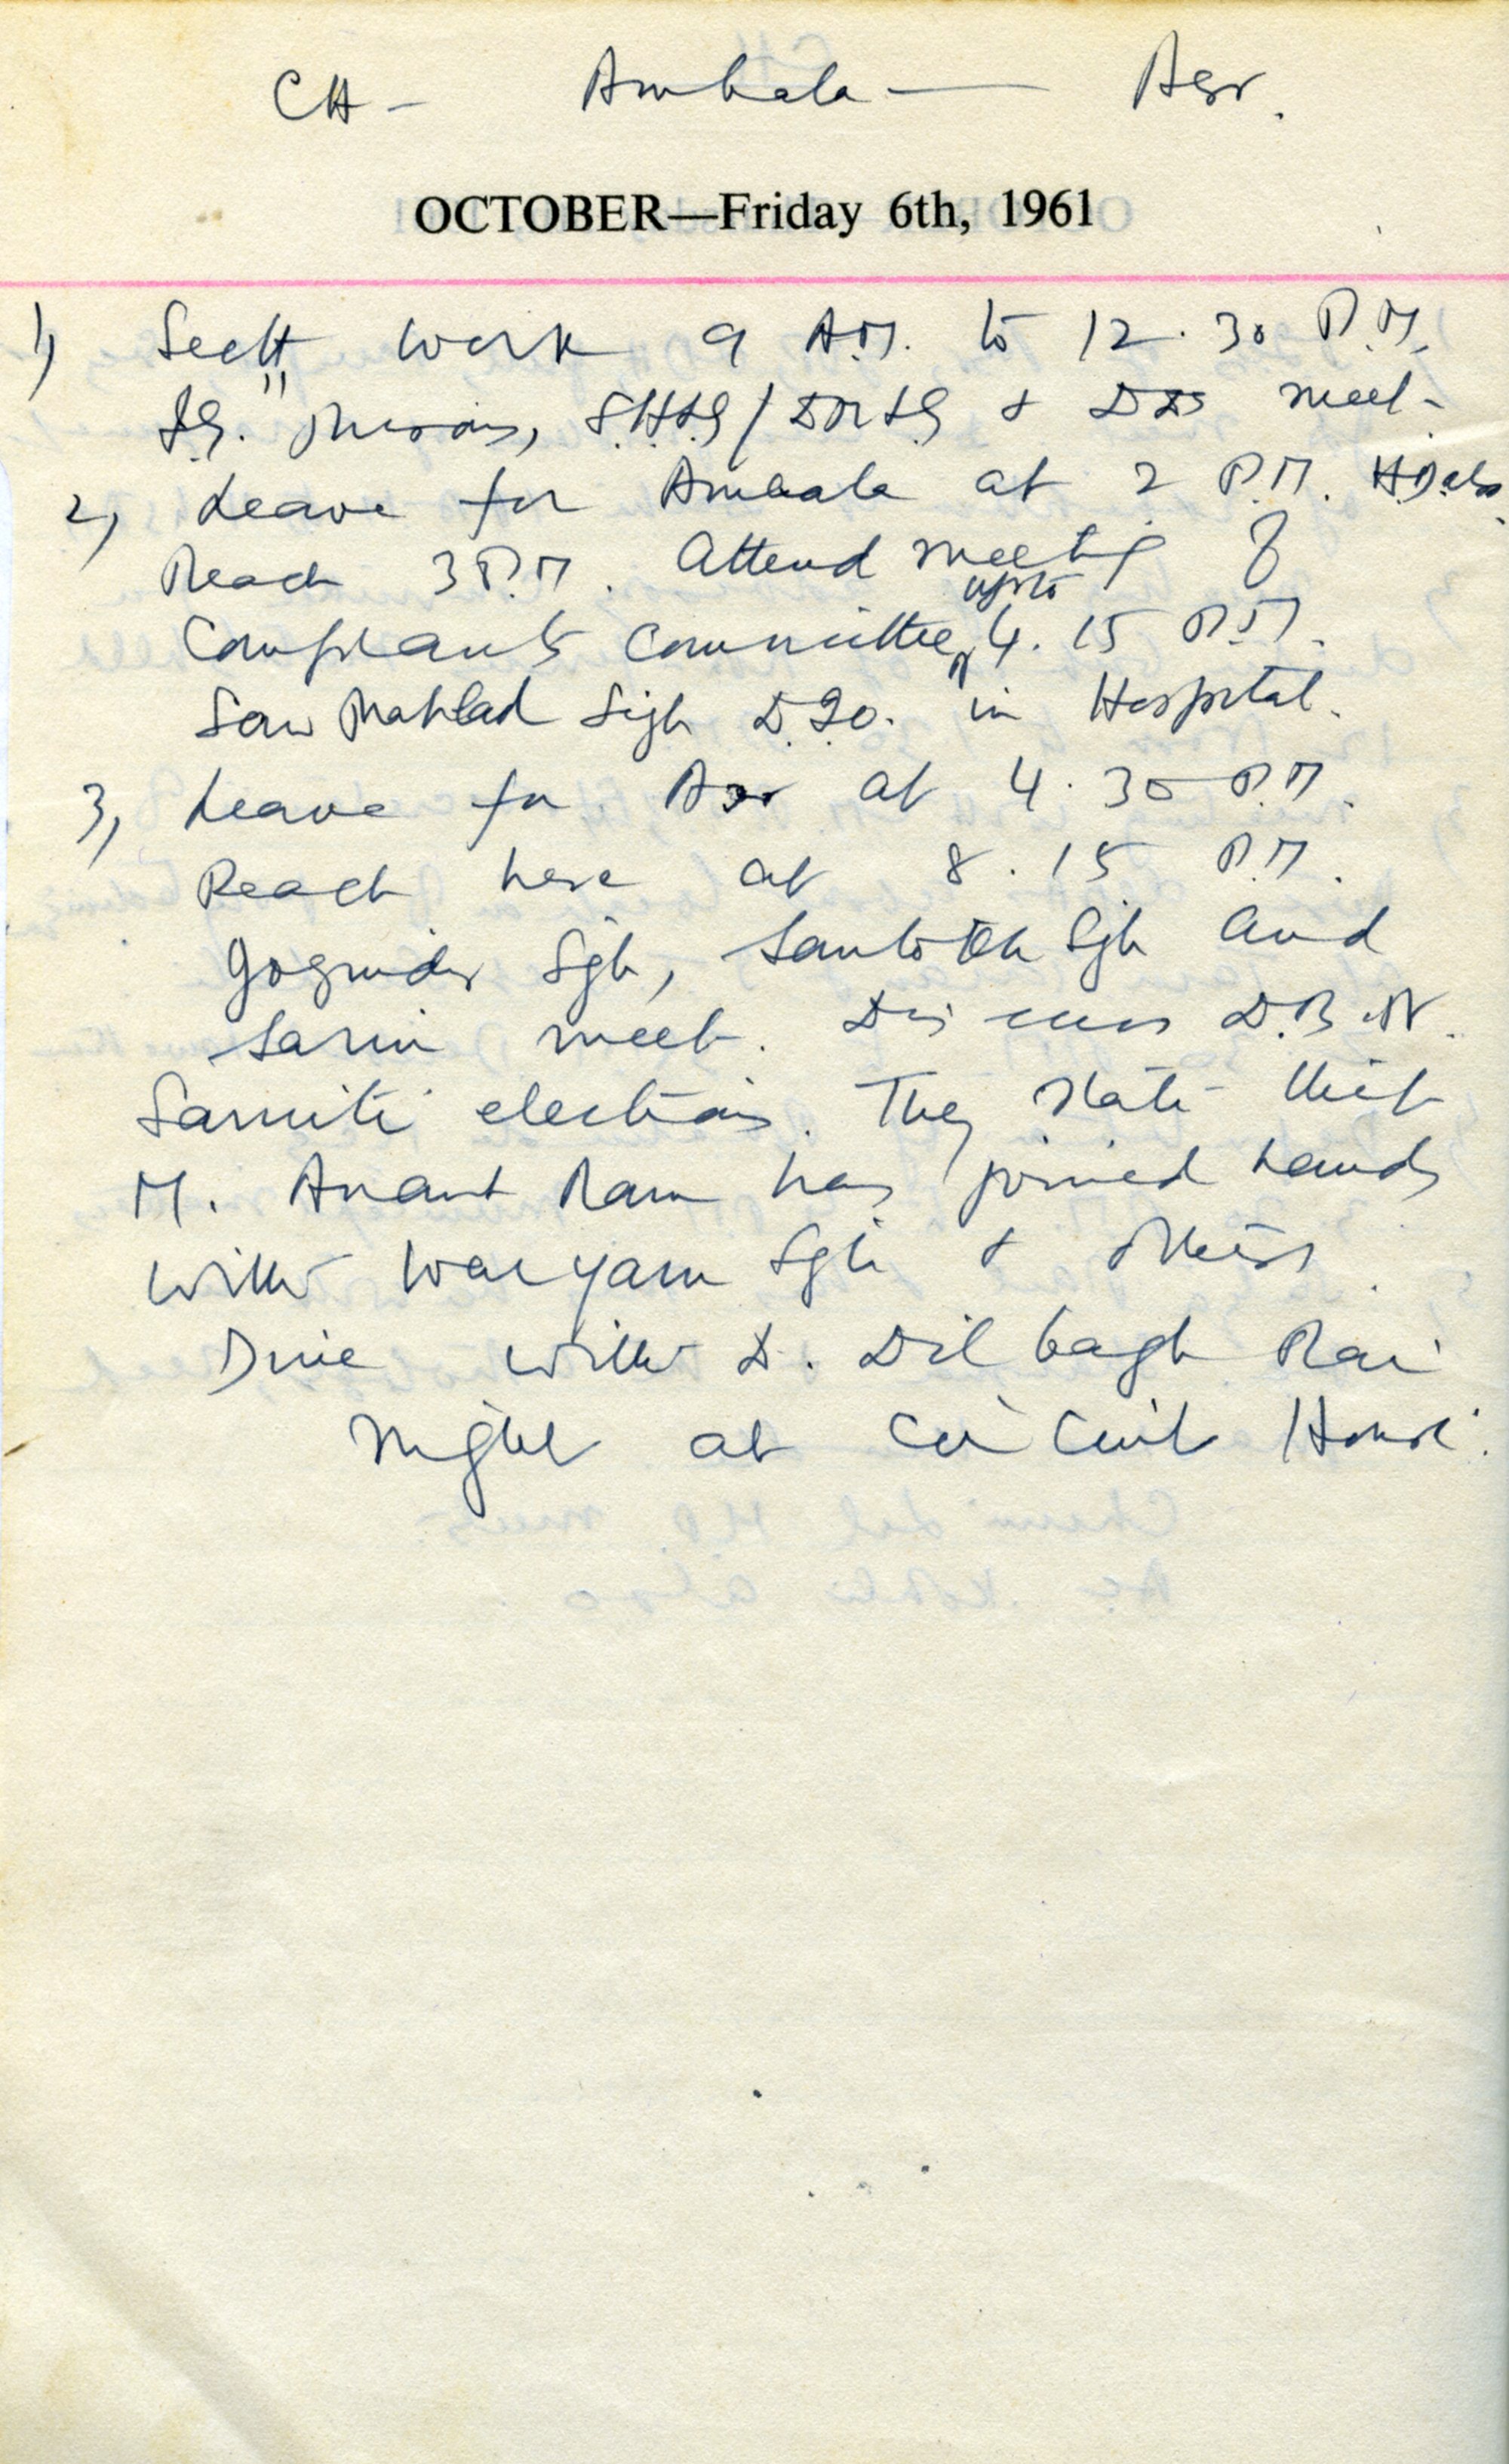 CH - Ambala — Asr.
OCTOBER—Friday 6th, 1961
1) Sectt work 9 A.M. to 12.30 P.M.
I.G. Prisons, & DDS meet -
2) Leave for Ambala at 2 P.M.
Reach 3 P.M. Attend meeting of
Complaints Committee upto 4.15 P.M.
Saw Prahlad Sigh in Hospital.
3) Leave for Asr at 4.30 P.M.
Reach here at 8.15 P.M.
Jogindr Sgh, Santokh Sgh and
Sarin meet. Discuss D.B.N.
Samiti elections. They state that
M. Anant Ram has joined hands
with Waryam Sgh & others.
Dine with D. Dilbagh Rai
Night at Circuit House.